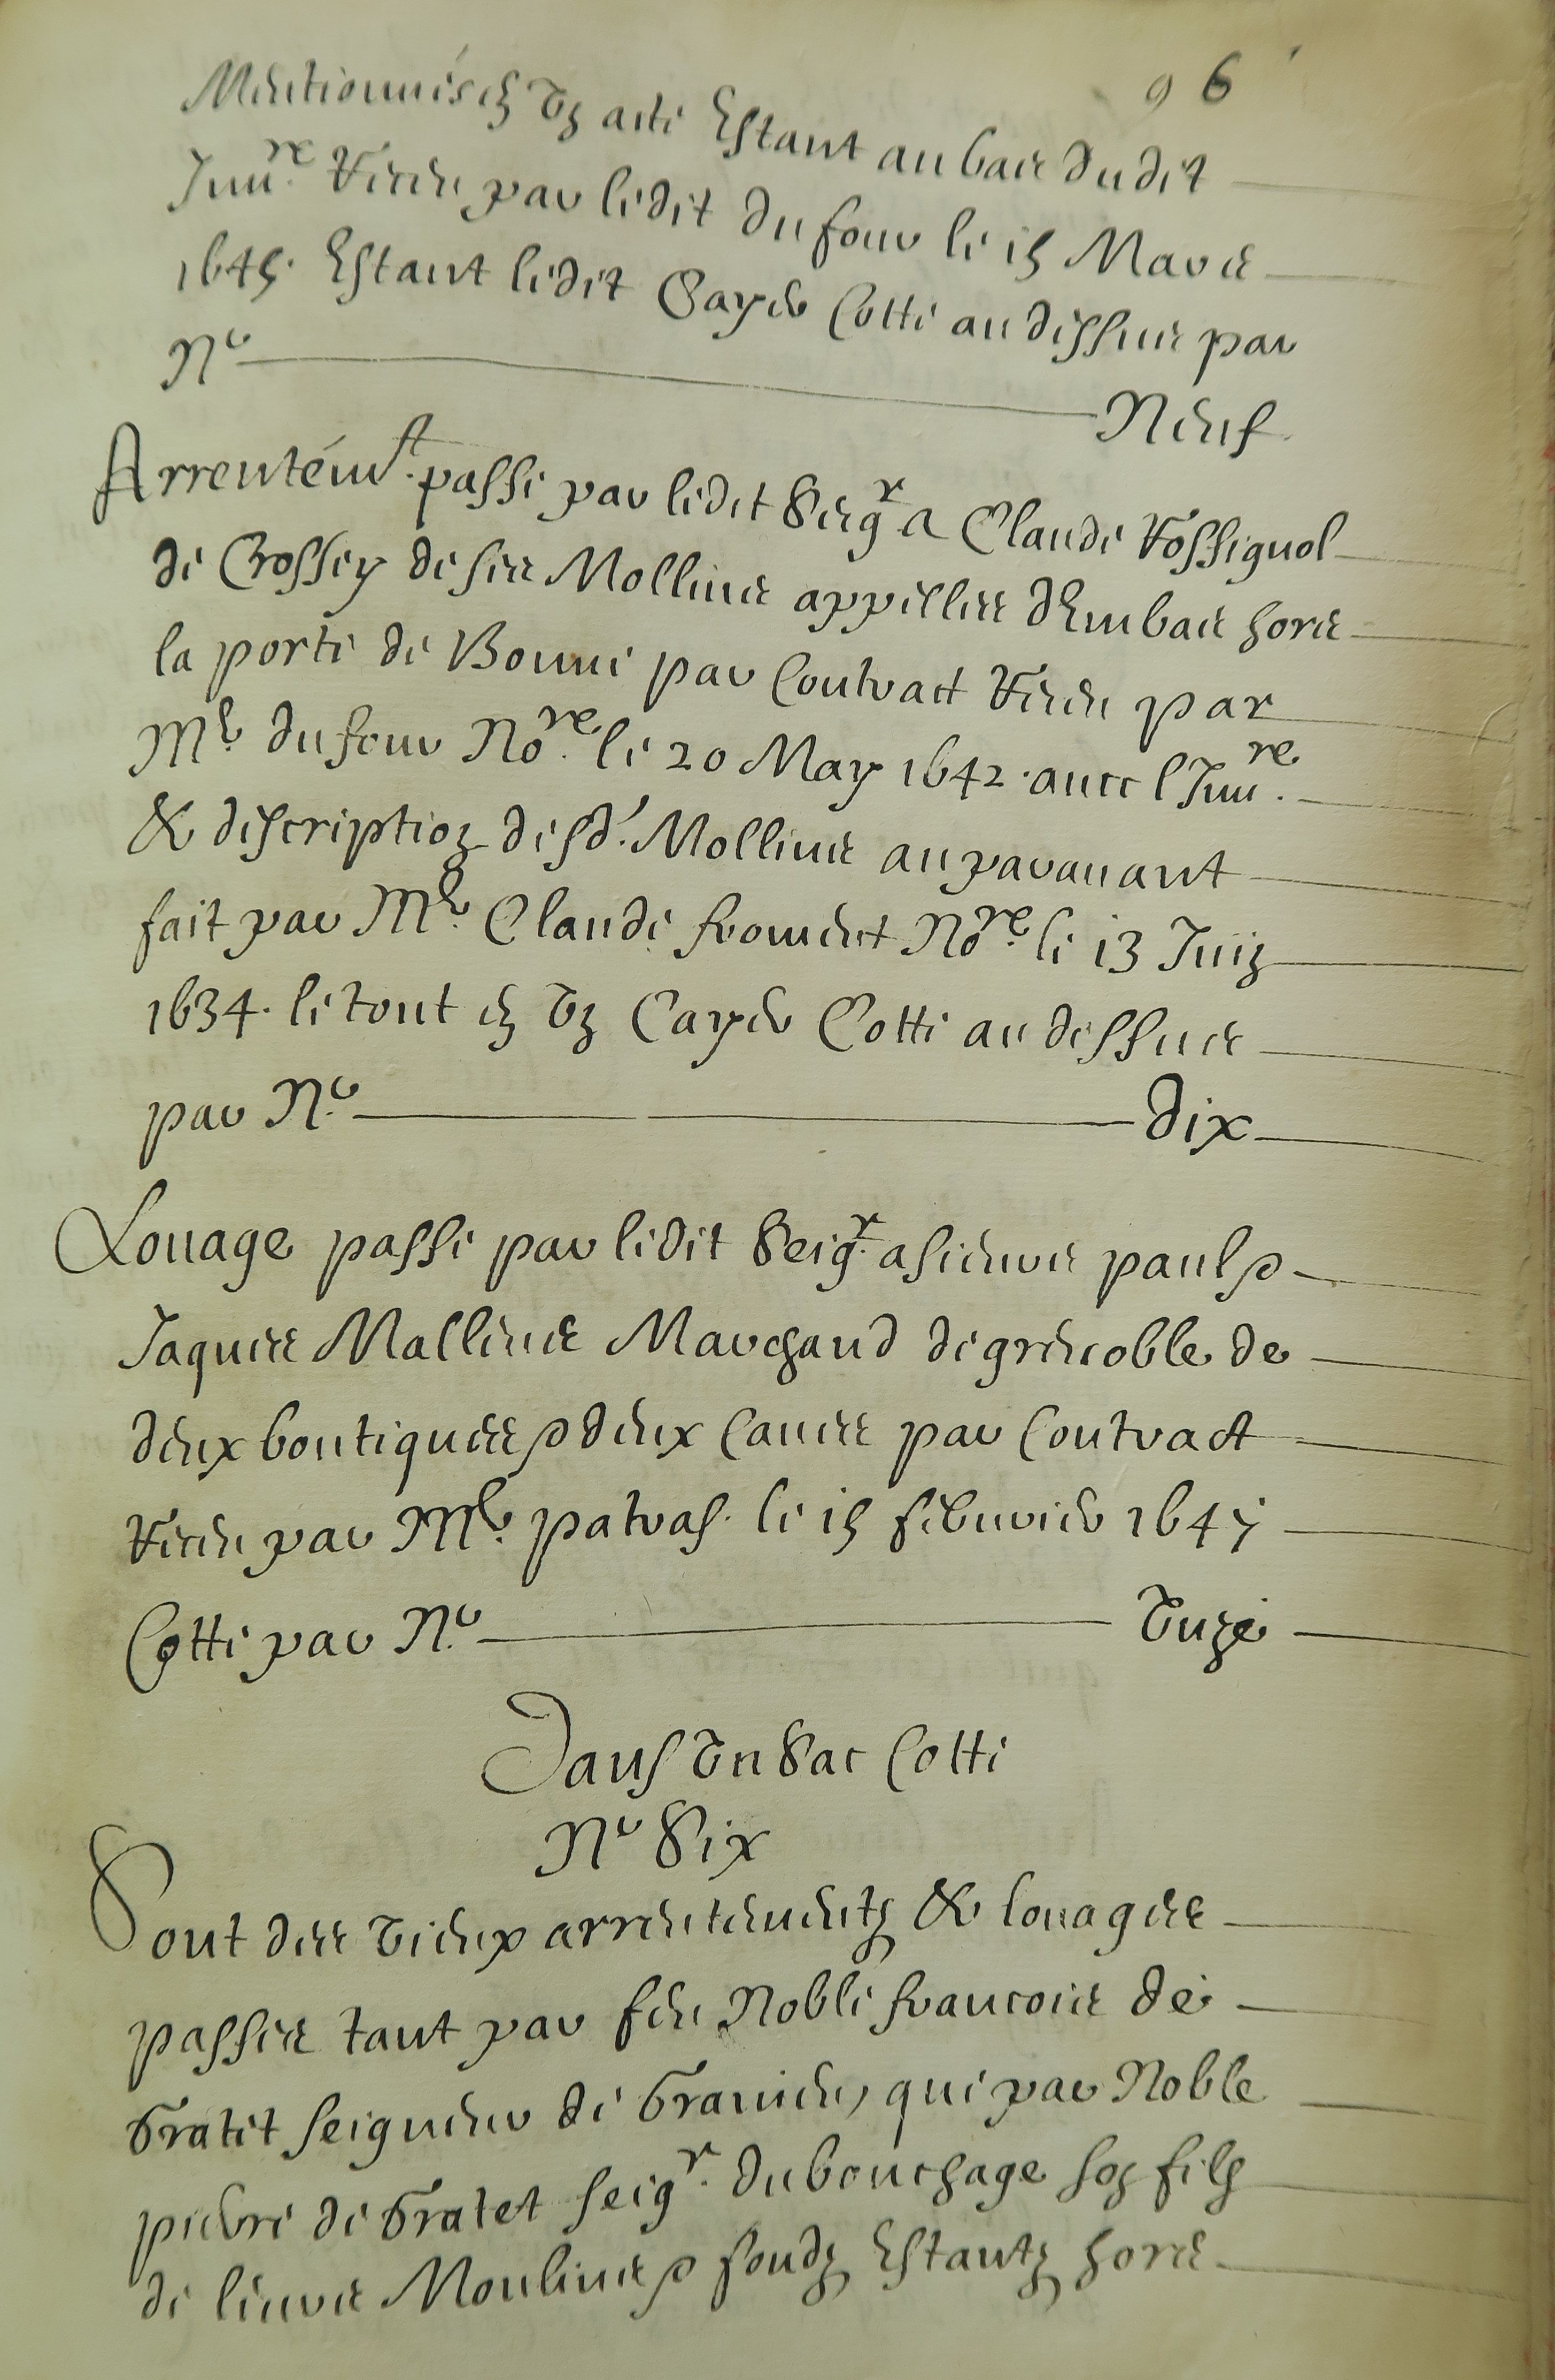 96
Mentionnés en Vn acte Estant au bas dudit
Inu.re Receu par ledit du four le 15 Mars
1645. Estant ledit Cayer Cotté au dessus par
No Neuf.
Arrentem.t passé par ledit Seig.r a Claude Rossignol
de Crossey de ses Mollins appellés dEmbas hors
la porte de Bonne par Contract Receu par
Me. du four No.re le 20 May 1642. auec l'Inu.re
& description desd. Mollins auparauant
fait par Me. Claude froment No.re le 13 Juin
1634. le tout en Vn Cayer Cotté au dessus
par No. dix
Louage passé par ledit Seig.r a sieurs paul &
Jaques Mallins Marchand de grenoble de
deux boutiques & deux Caues par Contract
Receu par Me. patras. le 15 feburier 1647
Cotté par No. Vnze
Dans Vn Sac Cotté
No Six
Sont des Vieux arrentementz & louages
passés tant par feu Noble francois de
Gratet seigneur de Granieu, que par Noble
pierre de Gratet seig.r du bouchage son filz
de leurs Moulins & fondz Estantz hors